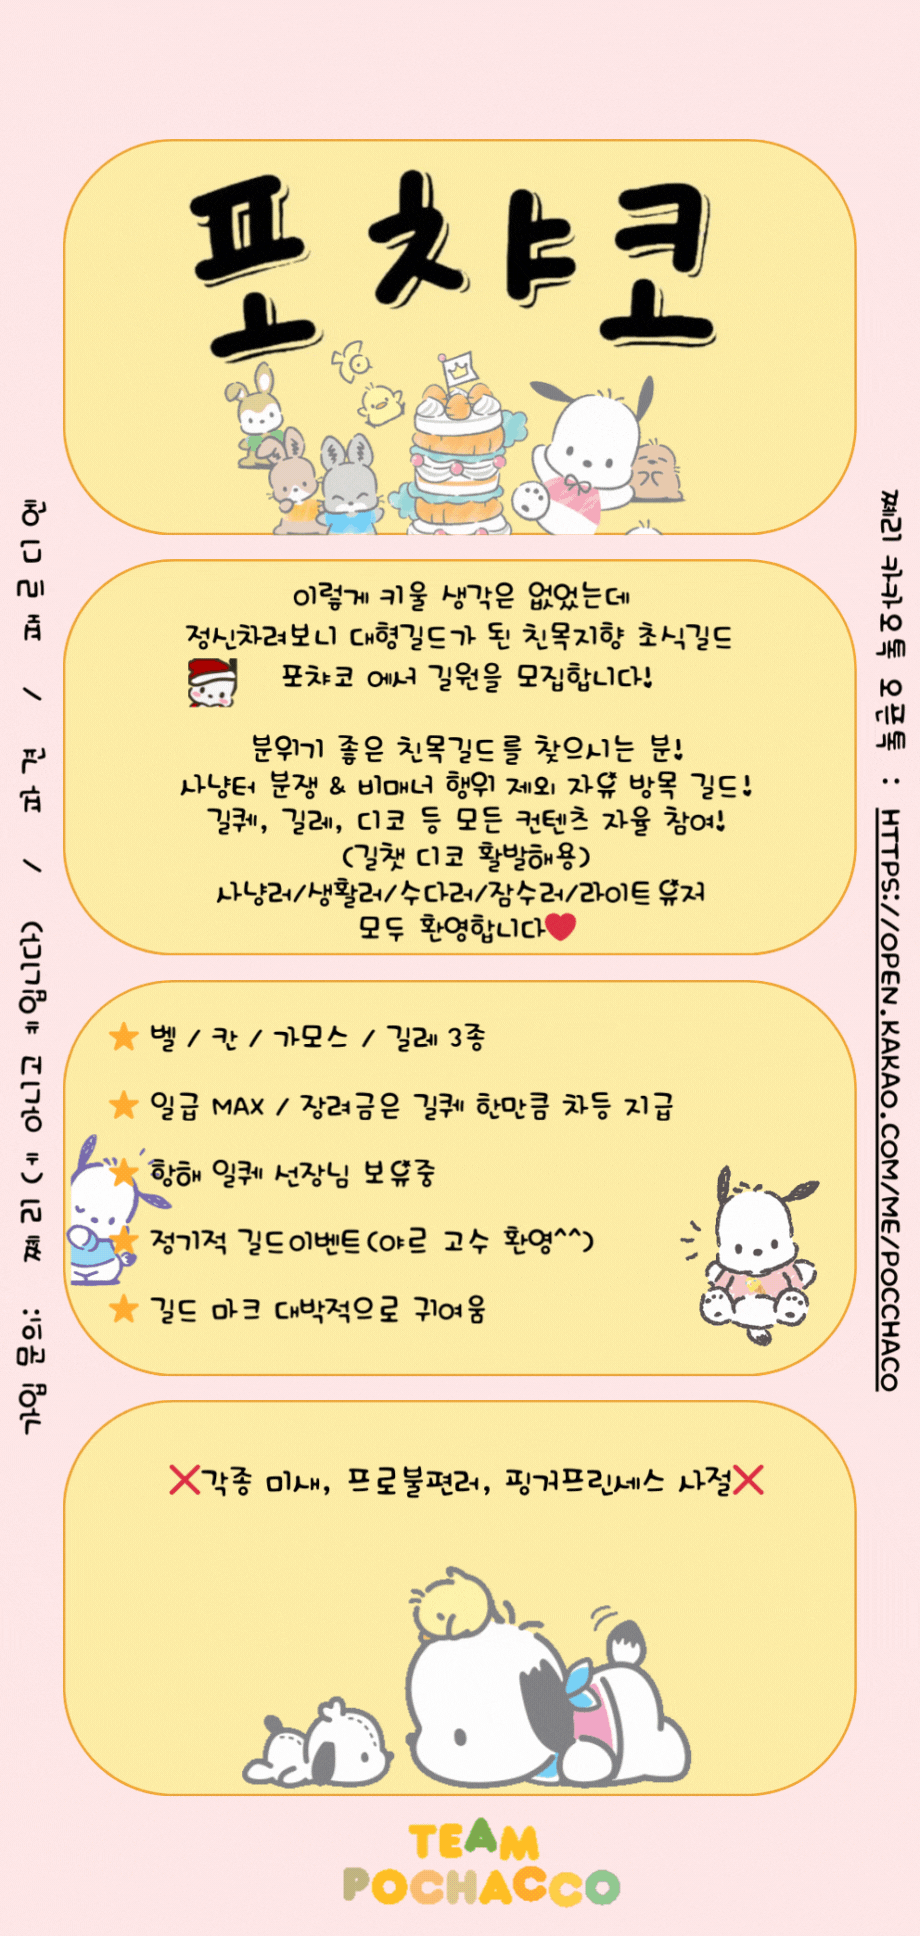 포챠코
이렇게 키울 생각은 없었는데
정신차려보니 대형길드가 된 친목지향 초식길드
포챠코 에서 길원을 모집합니다!
분위기 좋은 친목길드를 찾으시는 분!
사냥터 분쟁 & 비매너 행위 제외 자유 방목 길드!
길퀘, 길레, 디코 등 모든 컨텐츠 자율 참여!
(길챗 디코 활발해용)
사냥러/생활러/수다러/잠수러/라이트유저
모두 환영합니다❤
⭐ 벨 / 칸 / 가모스 / 길레 3종
⭐ 일급 MAX / 장려금은 길퀘 한만큼 차등 지급
⭐ 항해 일퀘 선장님 보유중
⭐ 정기적 길드이벤트(야르 고수 환영^^)
⭐ 길드 마크 대박적으로 귀여움
❌각종 미새, 프로불편러, 핑거프린세스 사절❌
가입 문의: 쪠리( 아니고 ㅖ 입니다) / /
쪠리 카카오톡 오픈톡 : HTTPS://OPEN.KAKAO.COM/ME/POCCHACO
TEAM
POCHACCO